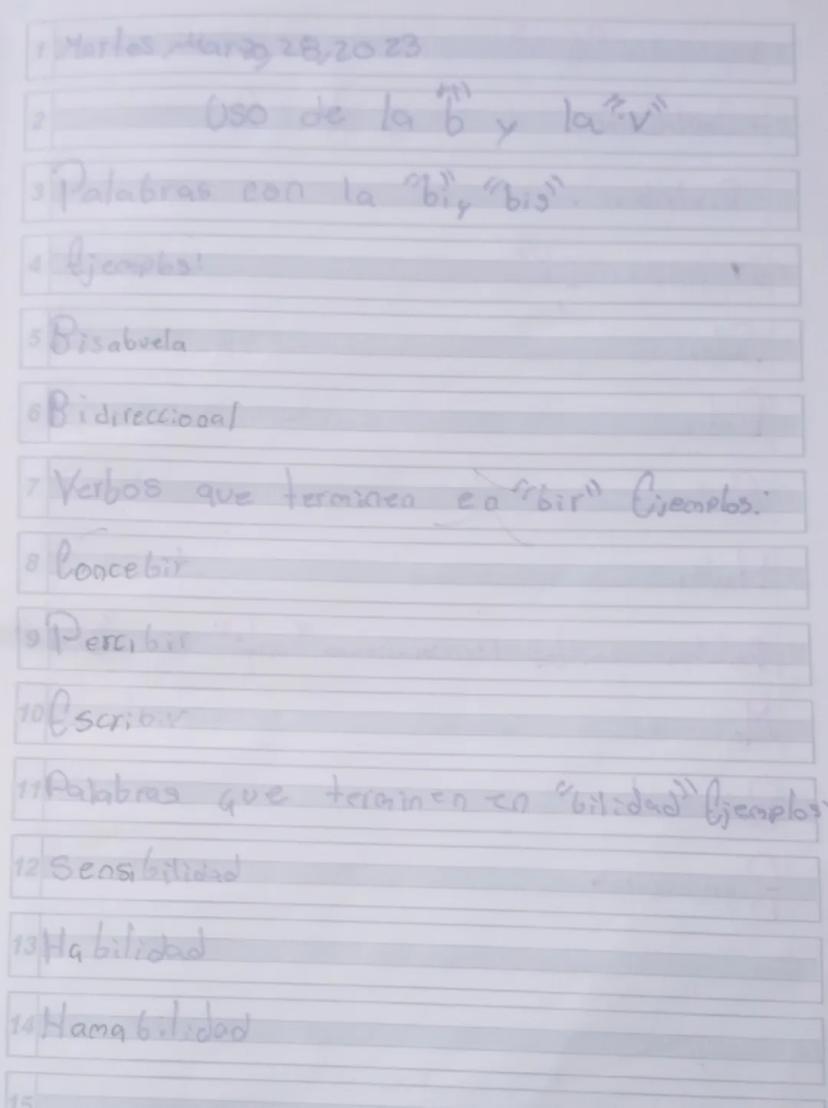 1 Martes, Marzo 28, 2023
2 Uso de la "b" y la "v"
3 Palabras con la "bi", "bis".
4 Ejemplos:
5 Bisabuela
6 Bidireccional
7 Verbos que terminen en "bir" Ejemplos:
8 Concebir
9 Percibir
10 Escribir
11 Palabras que terminen en "bilidad" Ejemplos
12 Sensibilidad
13 Habilidad
14 Hamabilidad
15